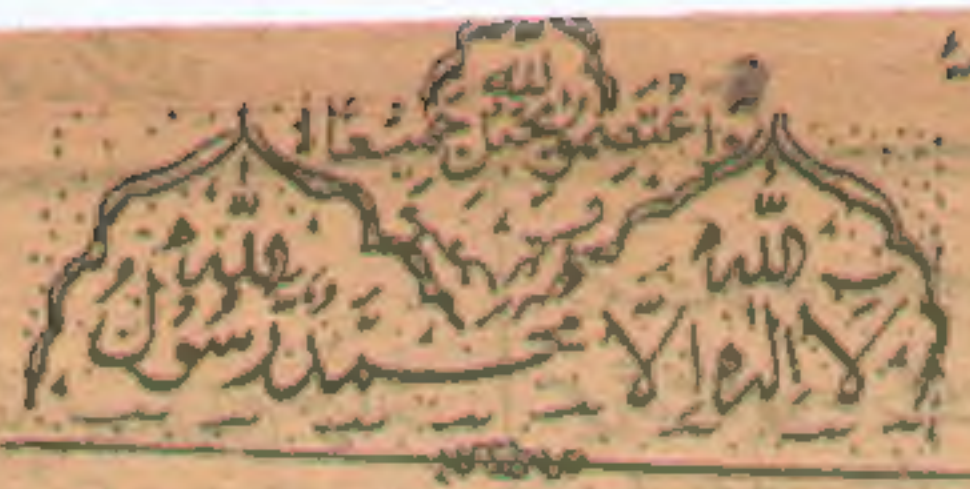 واعتصموا بحبل الله جميعًا
لا اله الا الله محمد رسول الله